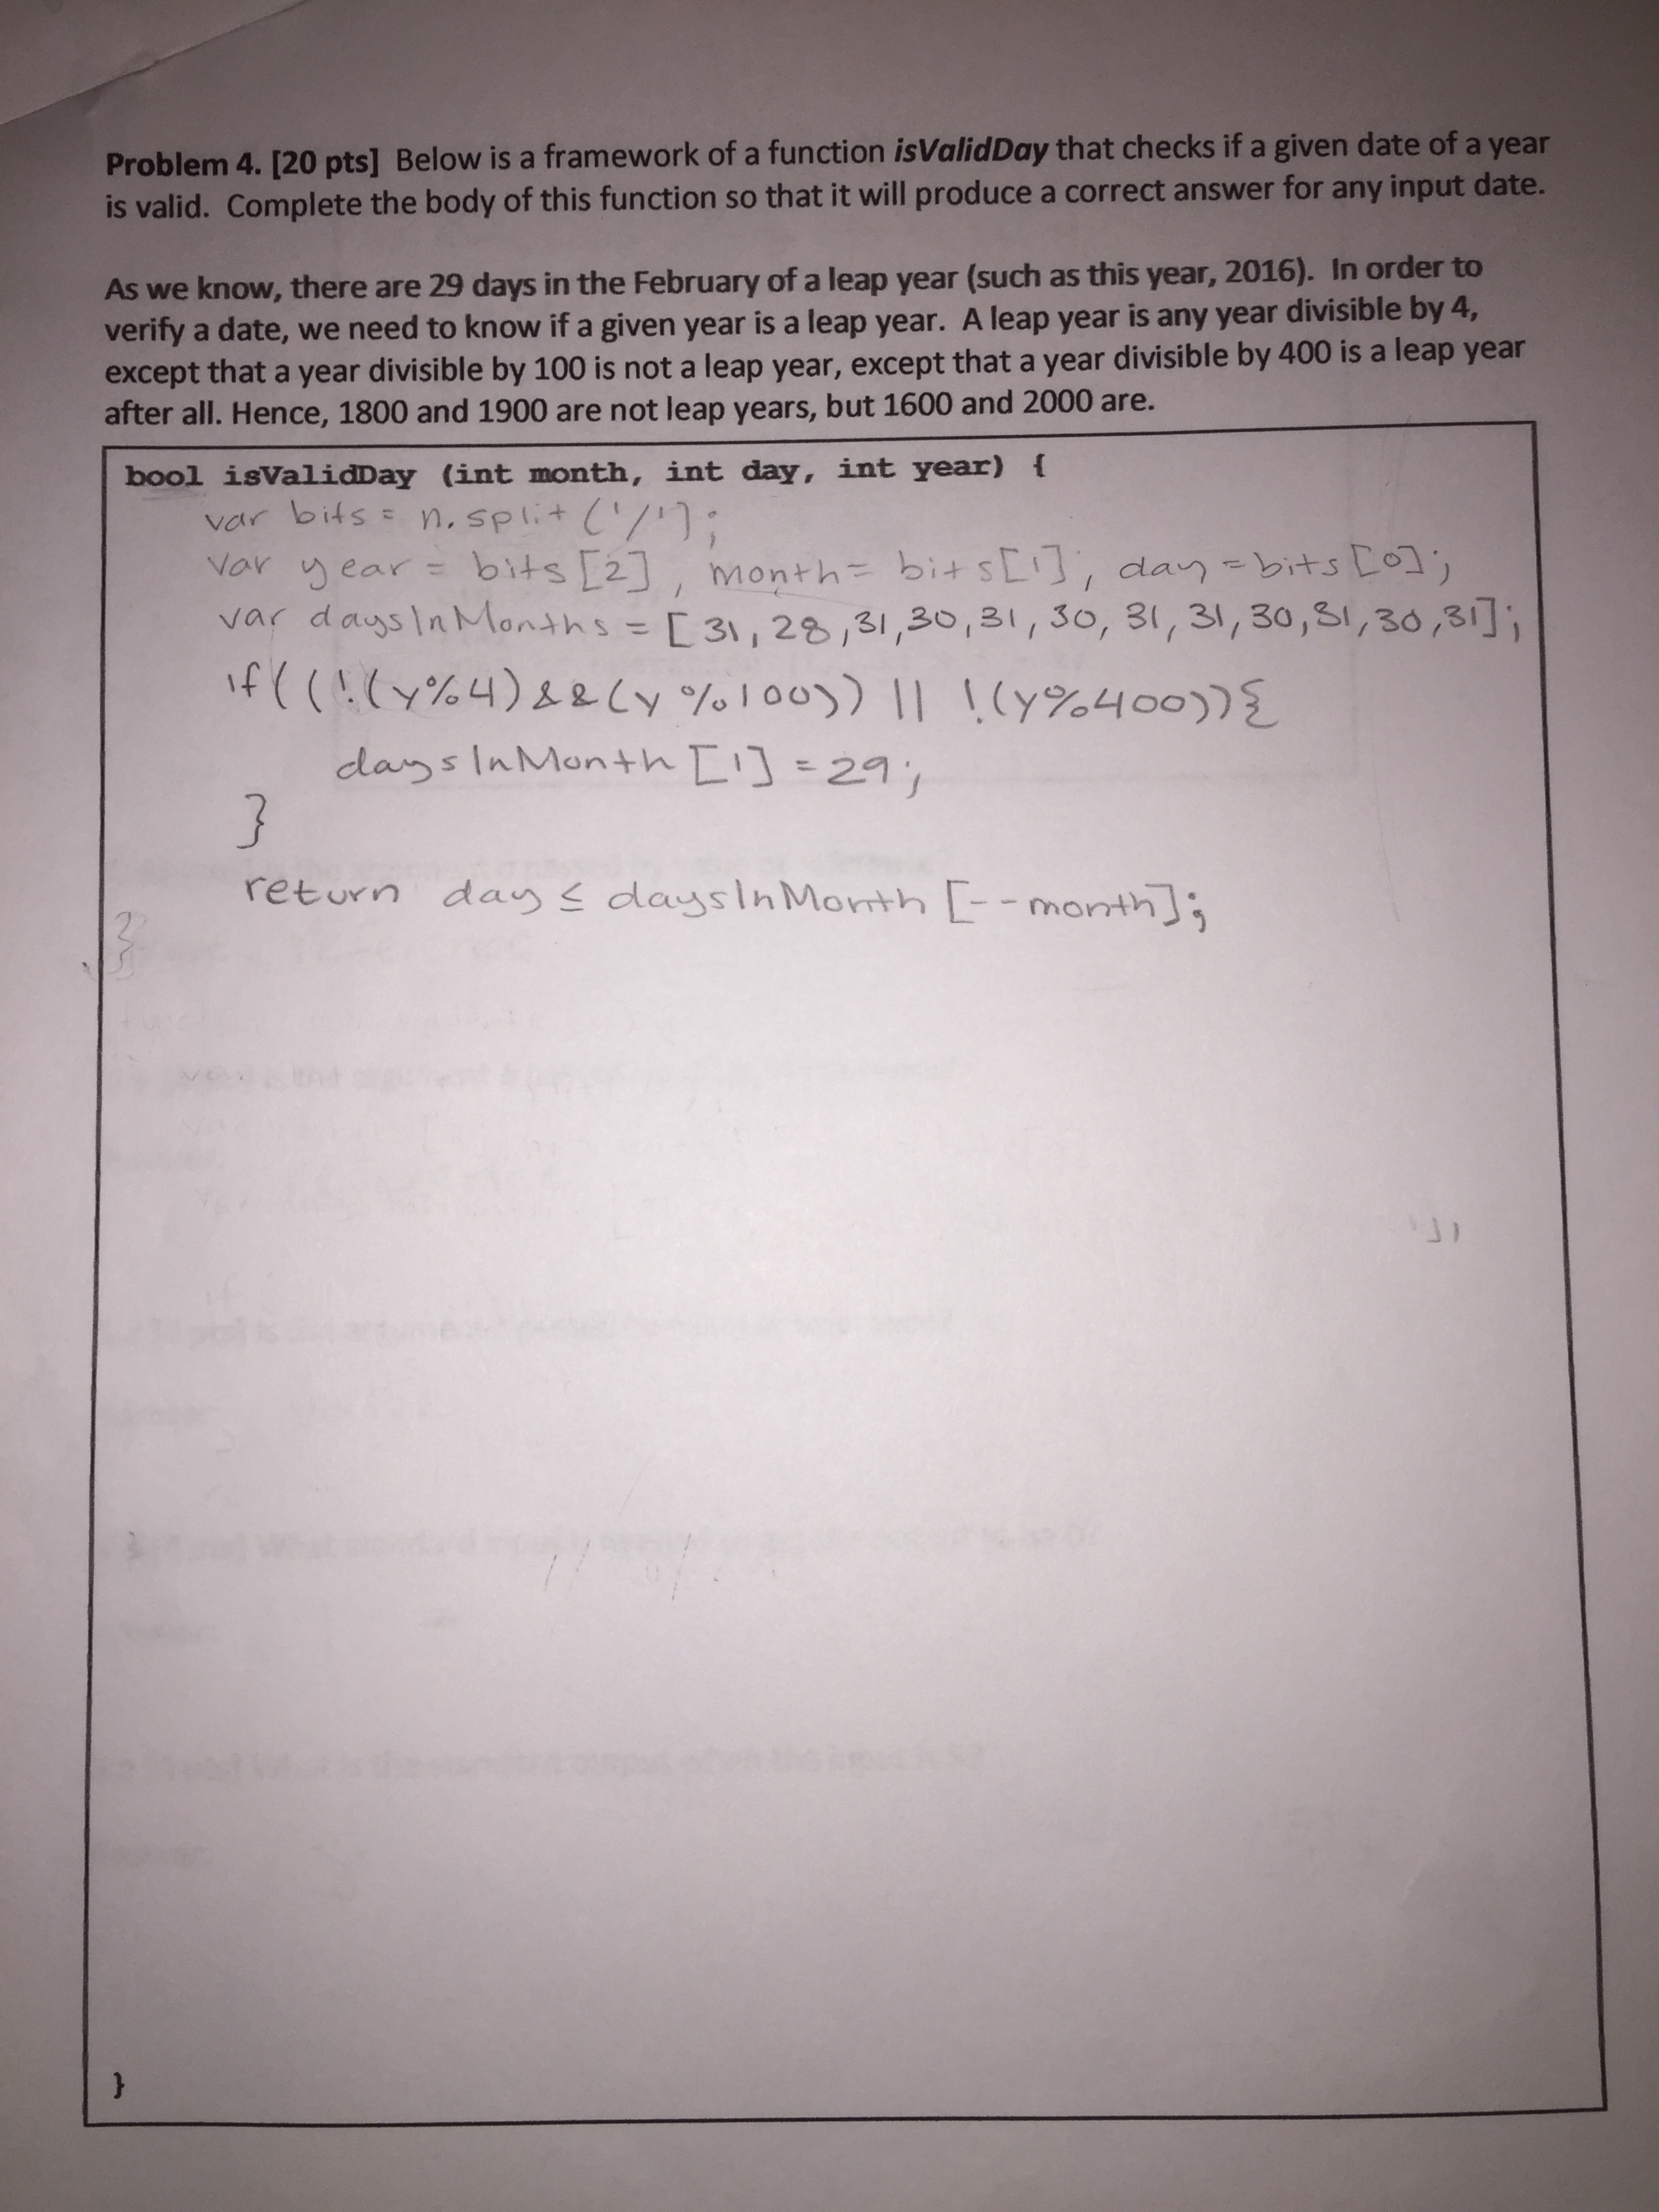 Problem 4. [20 pts] Below is a framework of a function isValidDay that checks if a given date of a year
is valid. Complete the body of this function so that it will produce a correct answer for any input date.
As we know, there are 29 days in the February of a leap year (such as this year, 2016). In order to
verify a date, we need to know if a given year is a leap year. A leap year is any year divisible by 4,
except that a year divisible by 100 is not a leap year, except that a year divisible by 400 is a leap year
after all. Hence, 1800 and 1900 are not leap years, but 1600 and 2000 are.
bool isValidDay (int month, int day, int year) {
var bits = n.split('/'];
var year = bits[2], month = bits[1], day = bits[0];
var daysInMonths = [31,28,31,30,31,30,31,31,30,31,30,31];
if((!(y%4)&&(y%100)) || !(y%400)){
daysInMonth[1] = 29;
}
return day ≤ daysInMonth[--month];
}